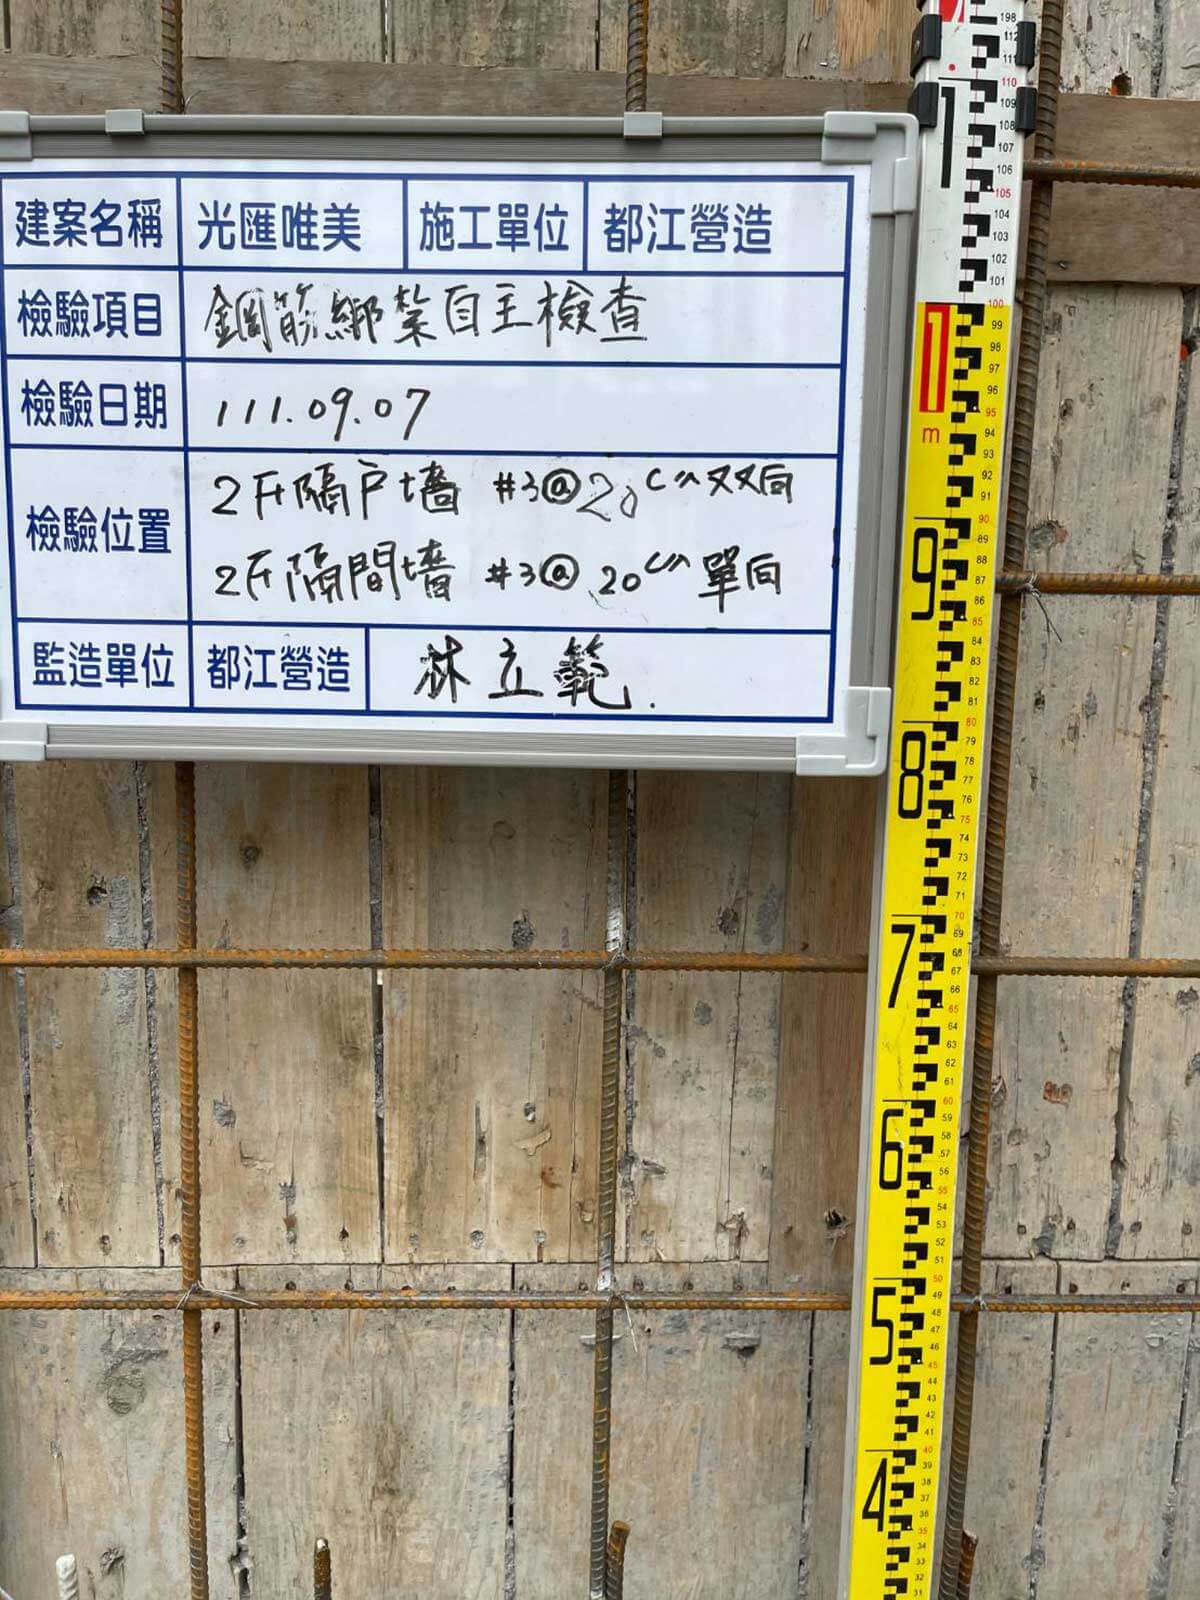 建案名稱 光匯唯美 施工單位 都江營造
檢驗項目 鋼筋綁紮自主檢查
檢驗日期 111.09.07
檢驗位置 2F隔戶墻 #3@20cm双向
2F隔間墻 #3@20cm單向
監造單位 都江營造 林立範.
198
112
111
110
1
109
108
107
106
105
104
103
102
101
100
1
m
99
98
97
96
95
94
93
92
91
90
9
89
88
87
86
85
84
83
82
81
80
8
79
78
77
76
75
74
73
72
71
70
7
69
68
67
66
65
64
63
62
61
60
6
59
58
57
56
55
54
53
52
51
50
5
49
48
47
46
45
44
43
42
41
40
4
39
38
37
36
35
34
33
32
31